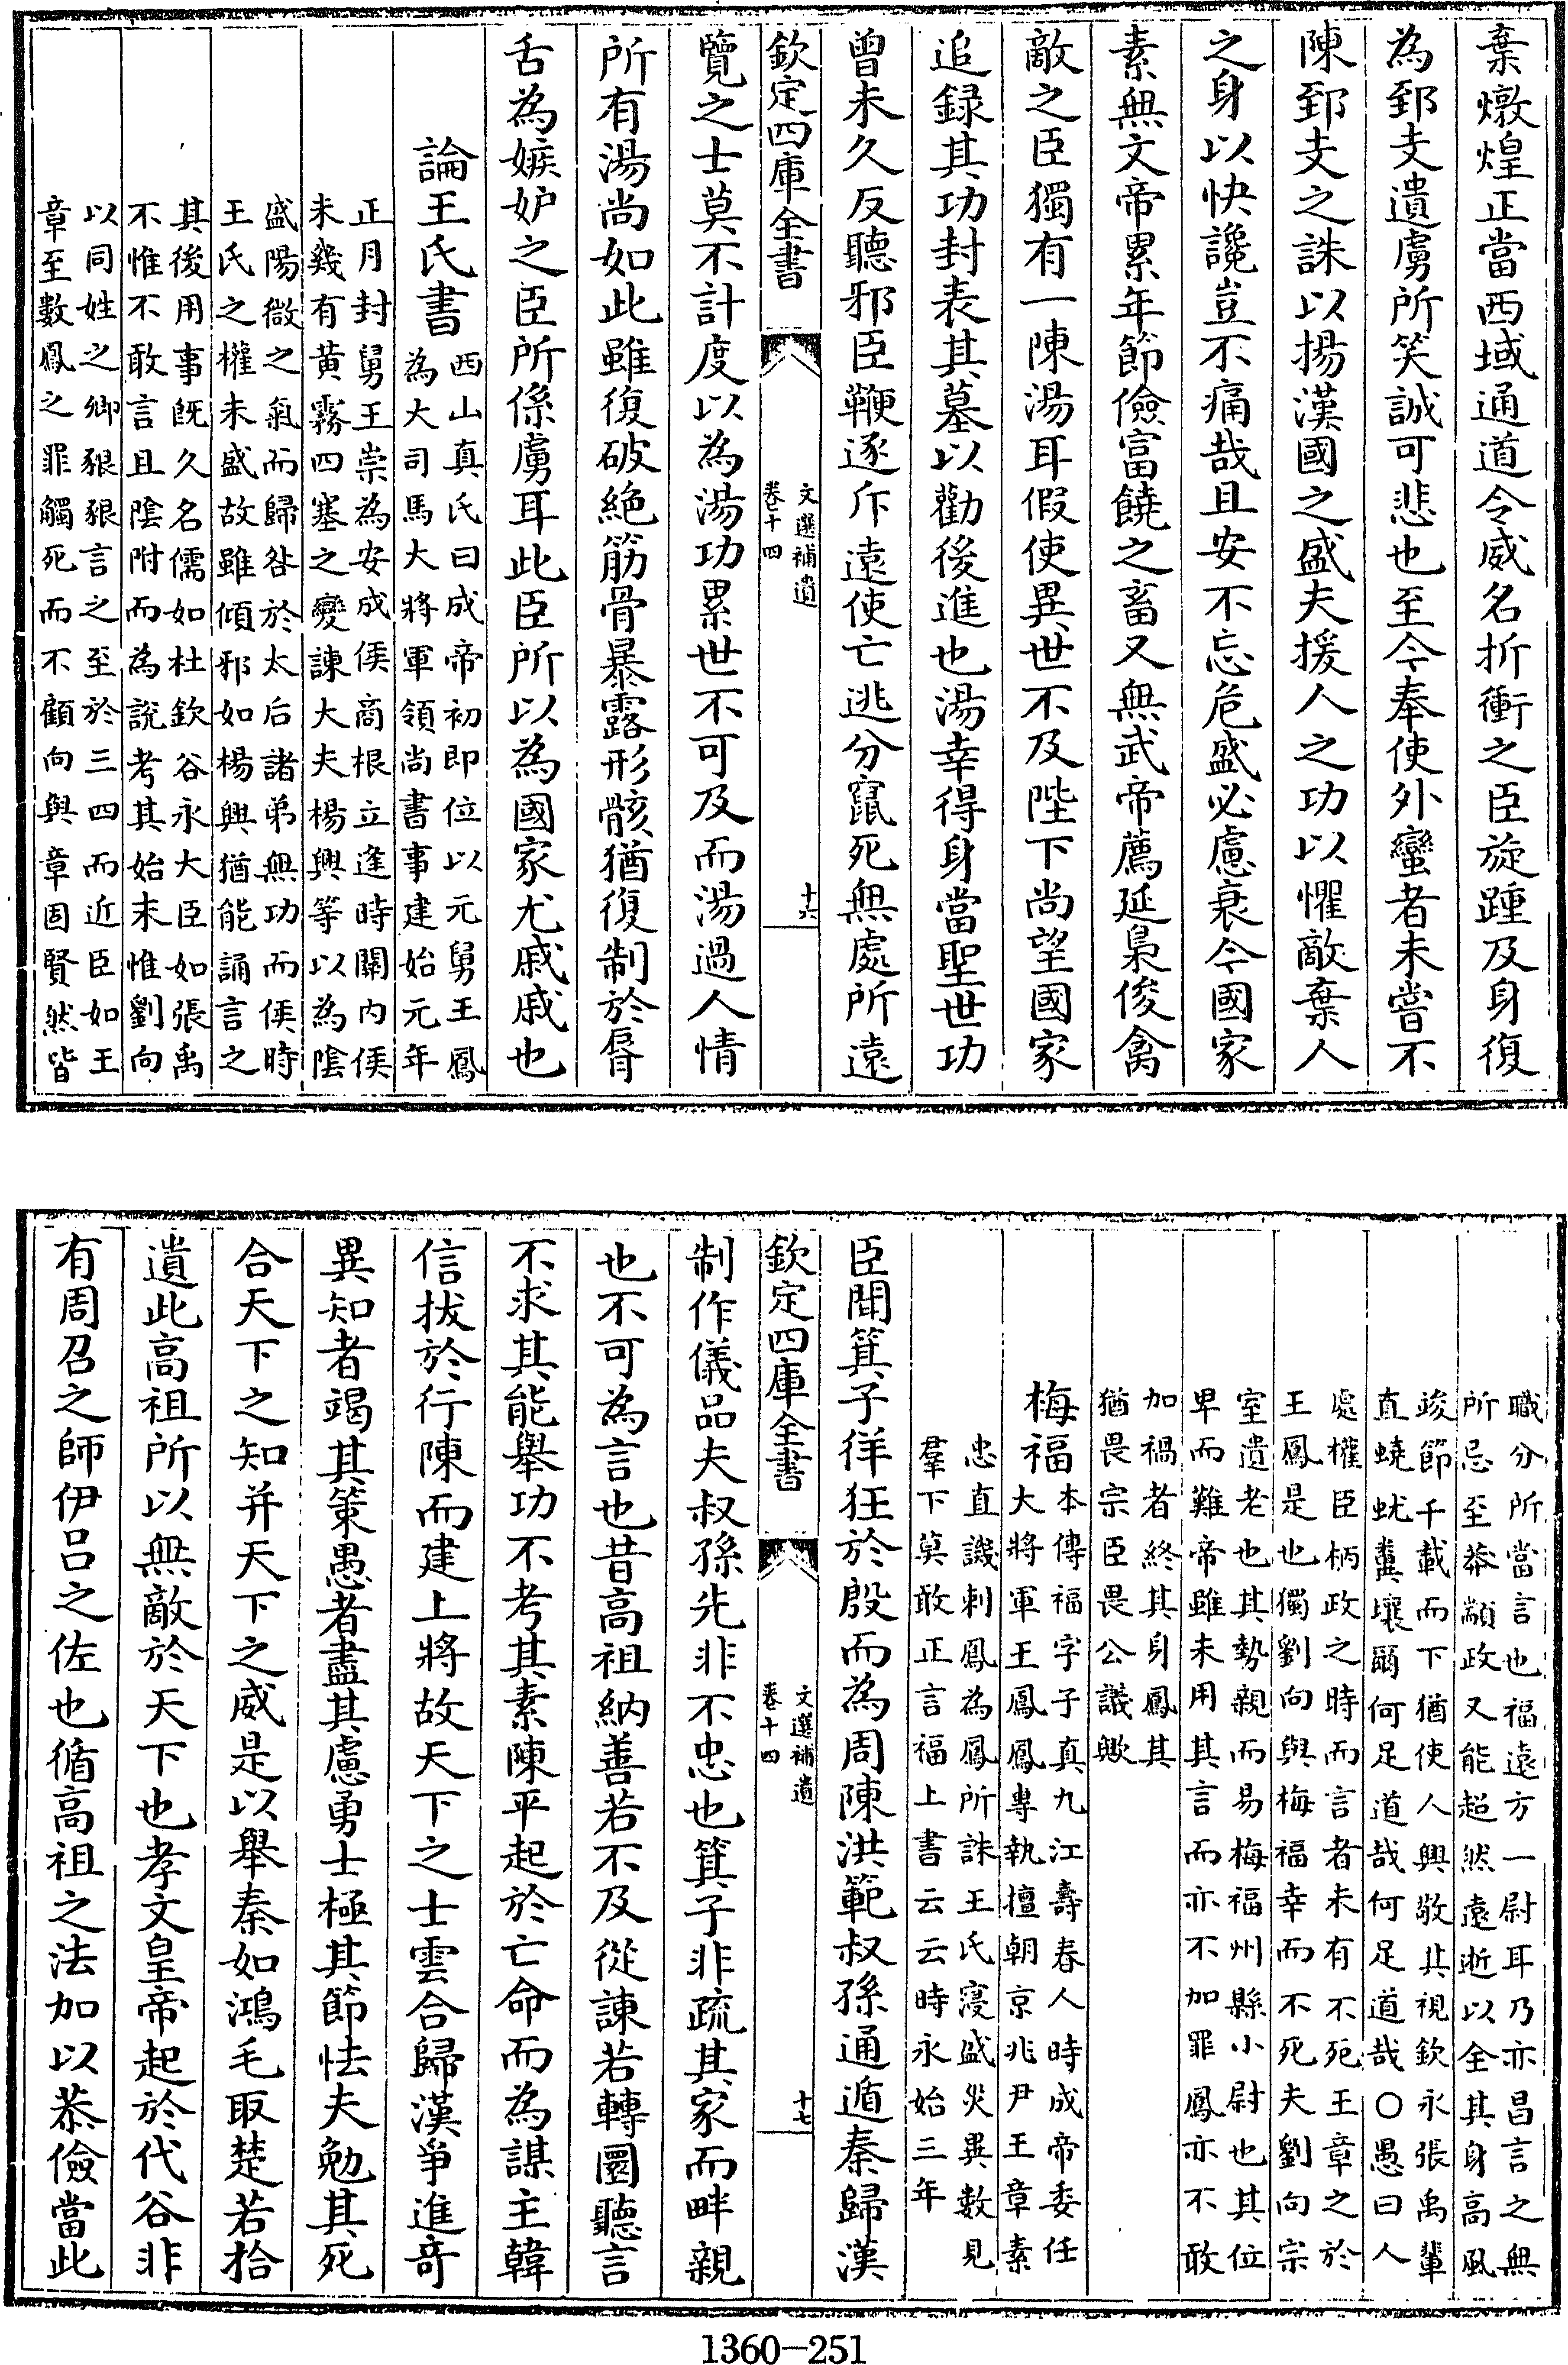 棄燉煌正當西域通道令威名折衝之臣旋踵及身復
為郅支遺虜所笑誠可悲也至今奉使外蠻者未嘗不
陳郅支之誅以揚漢國之盛夫援人之功以懼敵棄人
之身以快讒豈不痛哉且安不忘危盛必慮衰今國家
素無文帝累年節儉富饒之畜又無武帝薦延梟俊禽
敵之臣獨有一陳湯耳假使異世不及陛下尚望國家
追録其功封表其墓以勸後進也湯幸得身當聖世功
曾未久反聽邪臣鞭逐斥遠使亡逃分竄死無處所遠
欽定四庫全書
文選補遺
卷十四
十六
覽之士莫不計度以為湯功累世不可及而湯過人情
所有湯尚如此雖復破絶筋骨暴露形骸猶復制於脣
舌為嫉妒之臣所係虜耳此臣所以為國家尤戚戚也
論王氏書
西山真氏曰成帝初即位以元舅王鳳
為大司馬大將軍領尚書事建始元年
正月封舅王崇為安成侯商根立逢時關内侯
未幾有黄霧四塞之變諫大夫楊興等以為陰
盛陽微之氣而歸咎於太后諸弟無功而侯時
王氏之權未盛故雖傾邪如楊興猶能誦言之
其後用事既久名儒如杜欽谷永大臣如張禹
不惟不敢言且陰附而為說考其始末惟劉向
以同姓之卿狠狠言之至於三四而近臣如王
章至數鳳之罪觸死而不顧向與章固賢然皆
職分所當言也福遠方一尉耳乃亦昌言之無
所忌至莽顓政又能超然遠逝以全其身高風
峻節千載而下猶使人興敬其視欽永張禹輩
直蟯蚘糞壤爾何足道哉何足道哉○愚曰人
處權臣柄政之時而言者未有不死王章之於
王鳳是也獨劉向與梅福幸而不死夫劉向宗
室遺老也其勢親而易梅福州縣小尉也其位
卑而難帝雖未用其言而亦不加罪鳳亦不敢
加禍者終其身鳳其
猶畏宗臣畏公議歟
梅福
本傳福字子真九江壽春人時成帝委任
大將軍王鳳鳳專執擅朝京兆尹王章素
忠直譏刺鳳為鳳所誅王氏寖盛災異數見
羣下莫敢正言福上書云云時永始三年
臣聞箕子佯狂於殷而為周陳洪範叔孫通遁秦歸漢
欽定四庫全書
文選補遺
卷十四
十七
制作儀品夫叔孫先非不忠也箕子非疏其家而畔親
也不可為言也昔高祖納善若不及從諫若轉圜聽言
不求其能舉功不考其素陳平起於亡命而為謀主韓
信拔於行陳而建上將故天下之士雲合歸漢爭進奇
異知者竭其策愚者盡其慮勇士極其節怯夫勉其死
合天下之知并天下之威是以舉秦如鴻毛取楚若拾
遺此高祖所以無敵於天下也孝文皇帝起於代谷非
有周召之師伊呂之佐也循高祖之法加以恭儉當此
1360-251